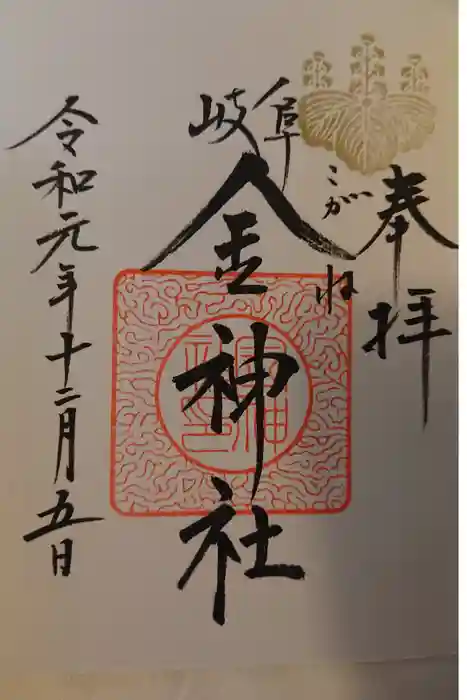 奉拝
こがね
岐阜
金神社
令和元年十二月五日